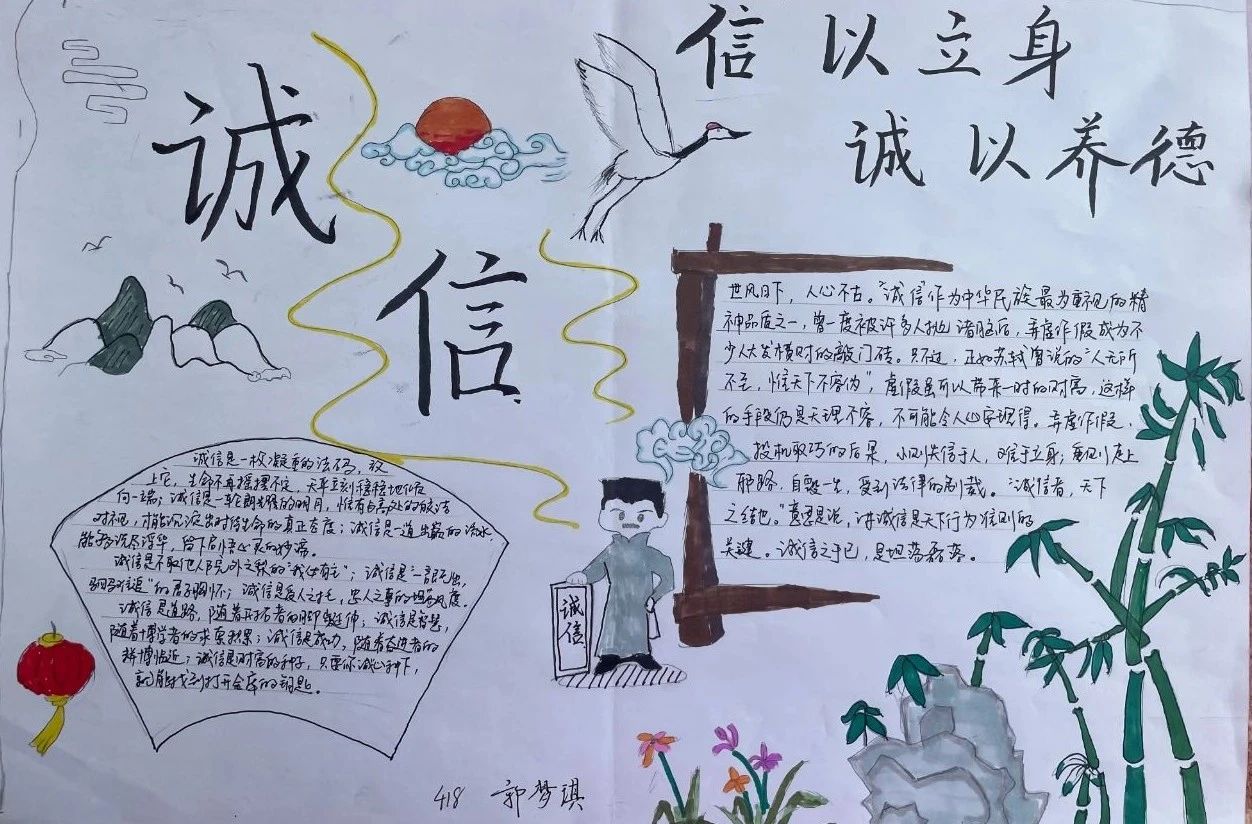 诚
信
信 以 立 身
诚 以 养 德
世风日下，人心不古。“诚信”作为中华民族最为重视的精
神品质之一，曾一度被许多人抛诸脑后，弄虚作假成为不
少人大发横财的敲门砖。只不过，正如苏轼曾说的“人无所
不至，惟天下不容伪”，虚假虽可以带来一时的财富，这样
的手段仍是天理不容，不可能令人心安理得。弄虚作假、
投机取巧的后果，小则失信于人，难于立身；重则走上
邪路，自毁一生，受到法律的制裁。“诚信者，天下
之结也。”意思是说，讲诚信是天下行为准则的
关键。诚信之于己，是坦荡磊落。
诚信是一枚凝重的法码，放
上它，生命不再摇摆不定，天平立刻稳稳地倾
向一端；诚信是一轮朗耀的明月，惟有与高处的皎洁
对视，才能沉淀出对待生命的真正态度；诚信是一道出岩的流水
能够洗尽浮华，
诚信是不取他人
诚信是“一言既出，
驷马难追”的君子胸怀；诚信是受人之托，忠人之事的坦荡风度。
诚信是道路，随着开拓者的脚步延伸；诚信是智慧，
随着博学者的求索积累；诚信是成功，随着奋进者的
拼搏临近；诚信是财富的种子，只要你诚心种下，
就能找到打开金库的钥匙。
诚信
418 郭梦琪